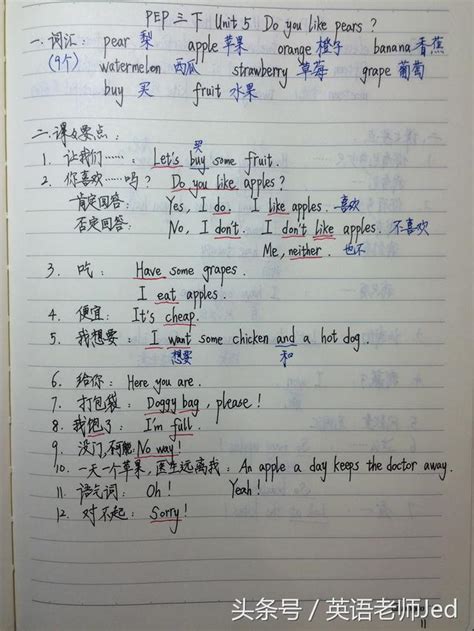 PEP 三下 Unit 5 Do you like pears?
一.词汇: pear 梨 apple 苹果 orange 橙子 banana 香蕉
(9个) watermelon 西瓜 strawberry 草莓 grape 葡萄
buy 买 fruit 水果
二.课文要点:
买
1. 让我们……: Let's buy some fruit.
2. 你喜欢……吗? Do you like apples?
肯定回答: Yes, I do. I like apples. 喜欢
否定回答: No, I don't. I don't like apples. 不喜欢
Me, neither. 也不
3. 吃: Have some grapes.
I eat apples.
4. 便宜: It's cheap.
5. 我想要: I want some chicken and a hot dog.
想要 和
6. 给你: Here you are.
7. 打包袋: Doggy bag, please!
8. 我饱了: I'm full.
9. 没门,不可能: No way!
10. 一天一个苹果,医生远离我: An apple a day keeps the doctor away.
11. 语气词: Oh! Yeah!
12. 对不起: Sorry!
头条号 / 英语老师Jed
11